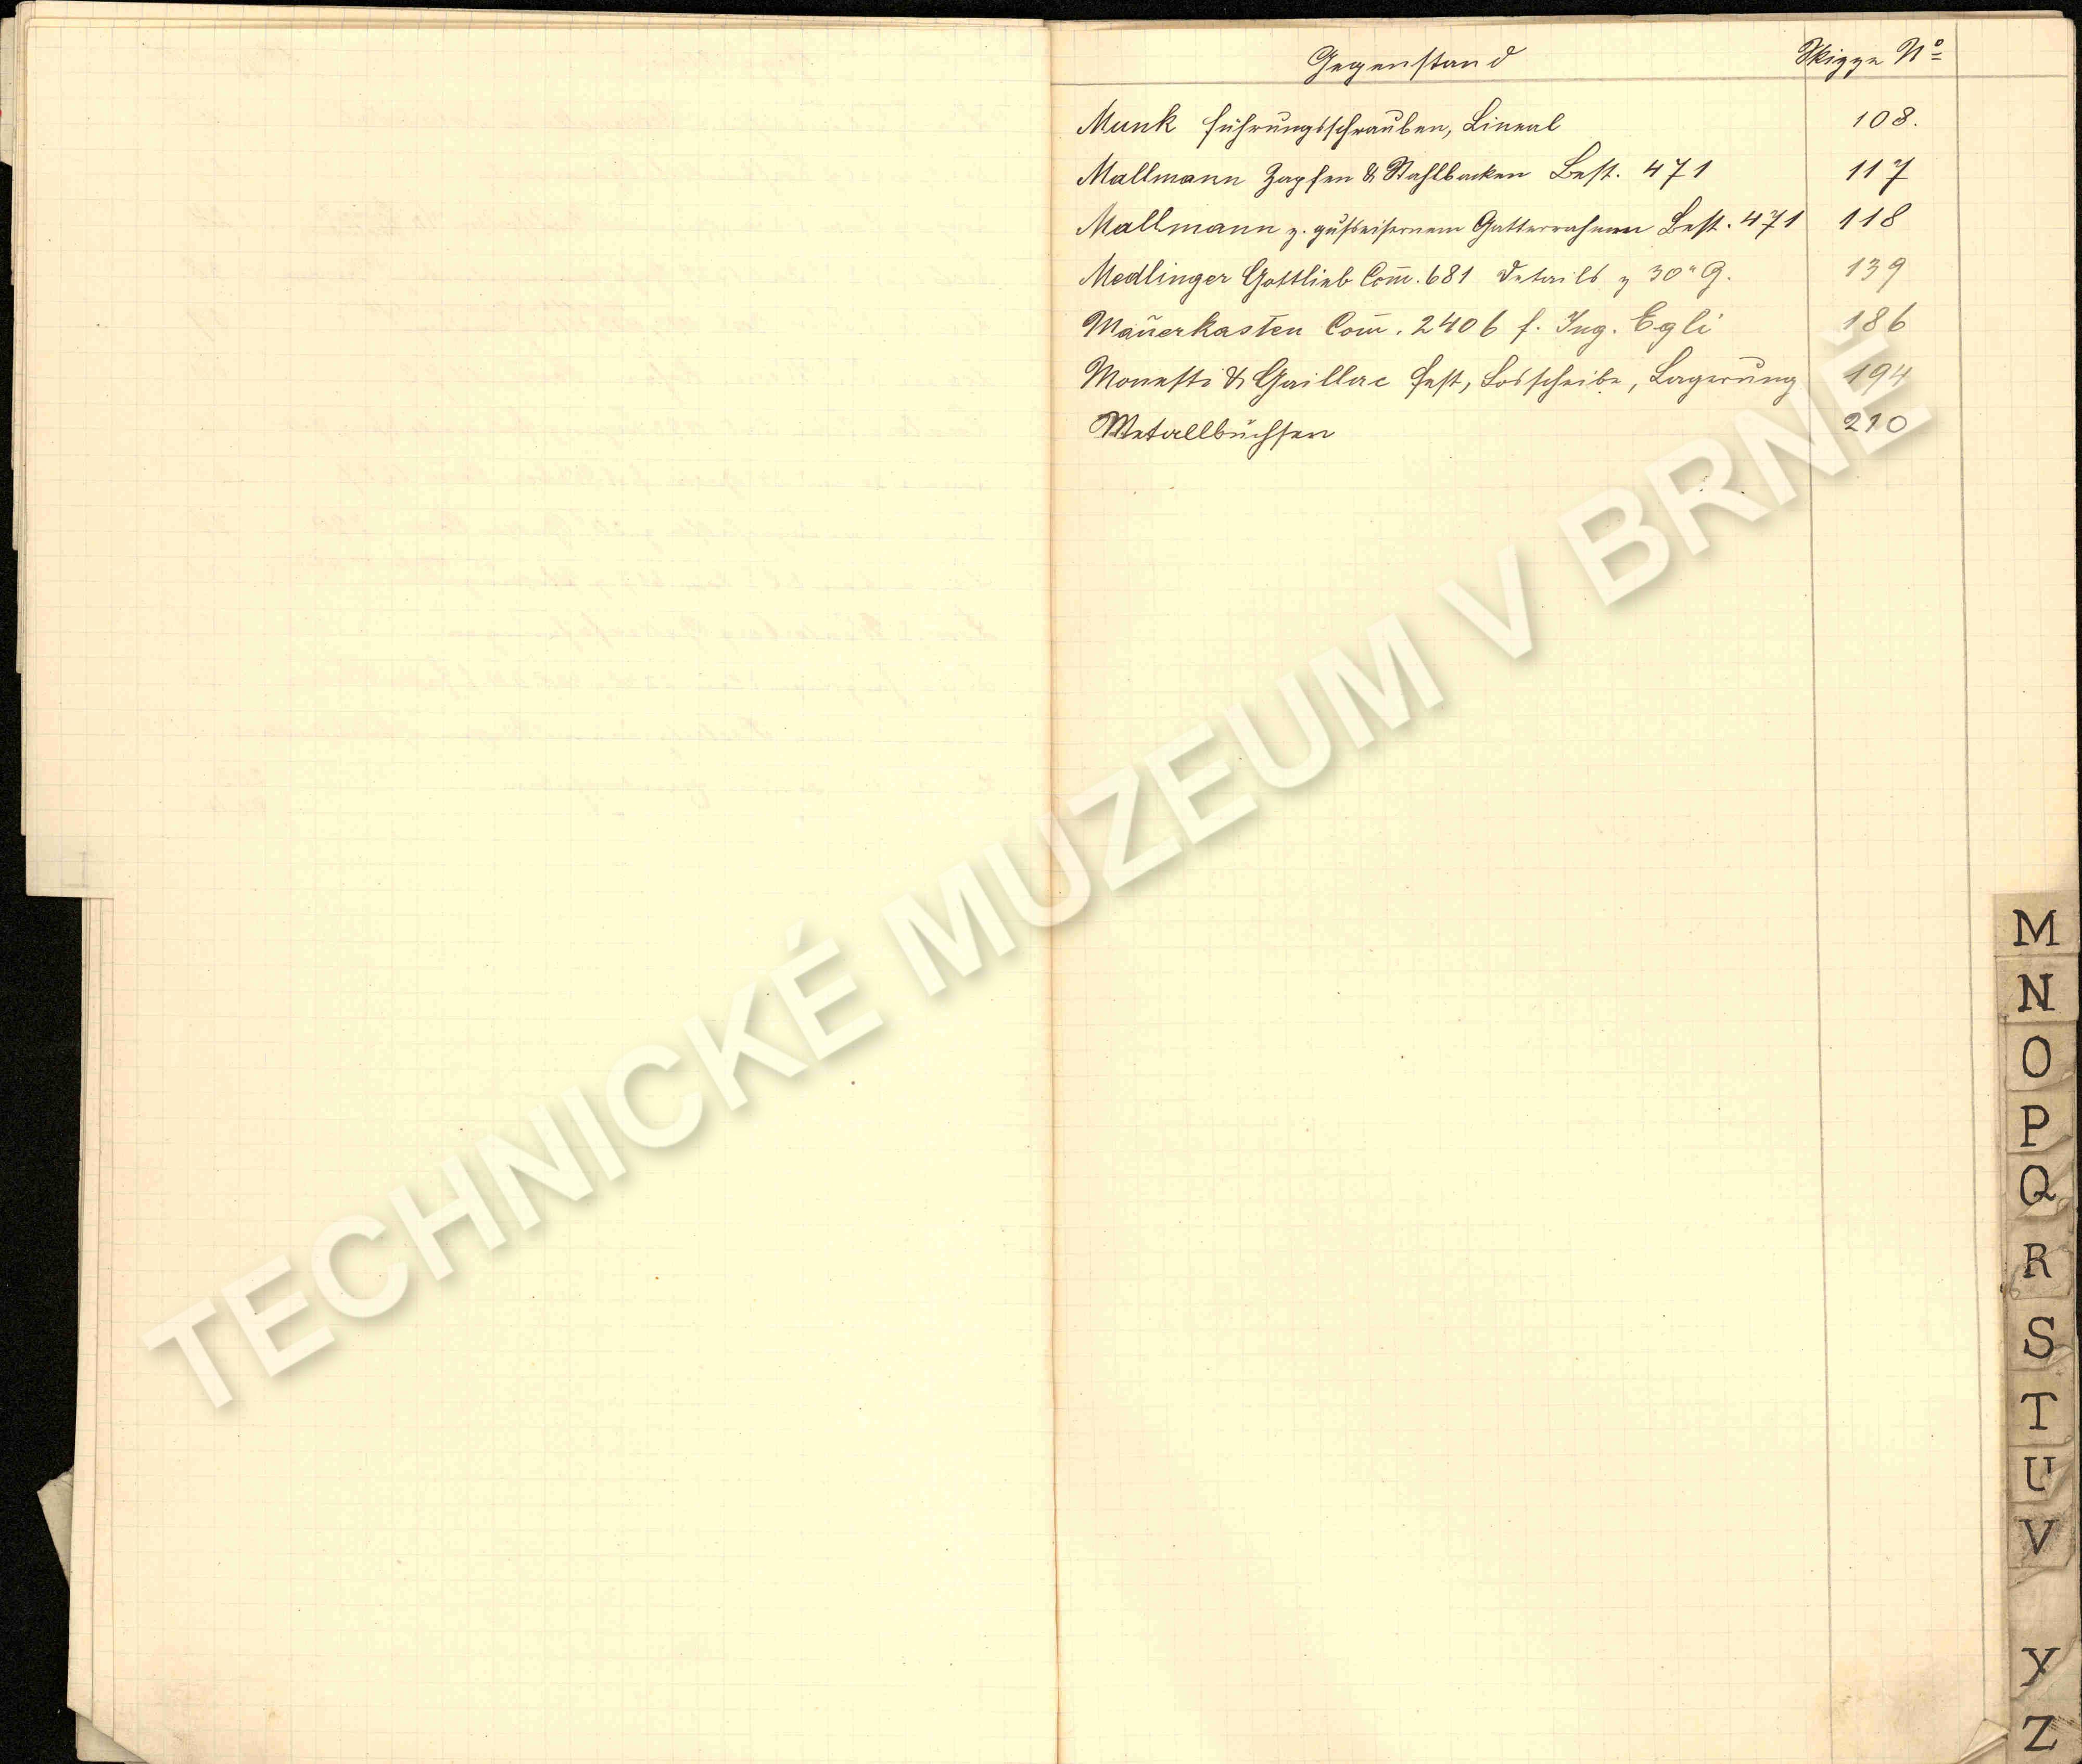 Gegenstand Skizze Nº
Munk Führungsschrauben, Lineal 108.
Mallmann Zapfen & Stahlbacken Best. 471 117
Mallmann z. gußeisernem Gatterrahmen Best. 471 118
Medlinger Gottlieb Com̄. 681 Details z 30" G. 139
Mauerkasten Com̄. 2406 f. Ing. Egli 186
Monetti & Gaillac Fest, Losscheibe, Lagerung 194
Metallbüchsen 210
TECHNICKÉ MUZEUM V BRNĚ
M
N
O
P
Q
R
S
T
U
V
Y
Z